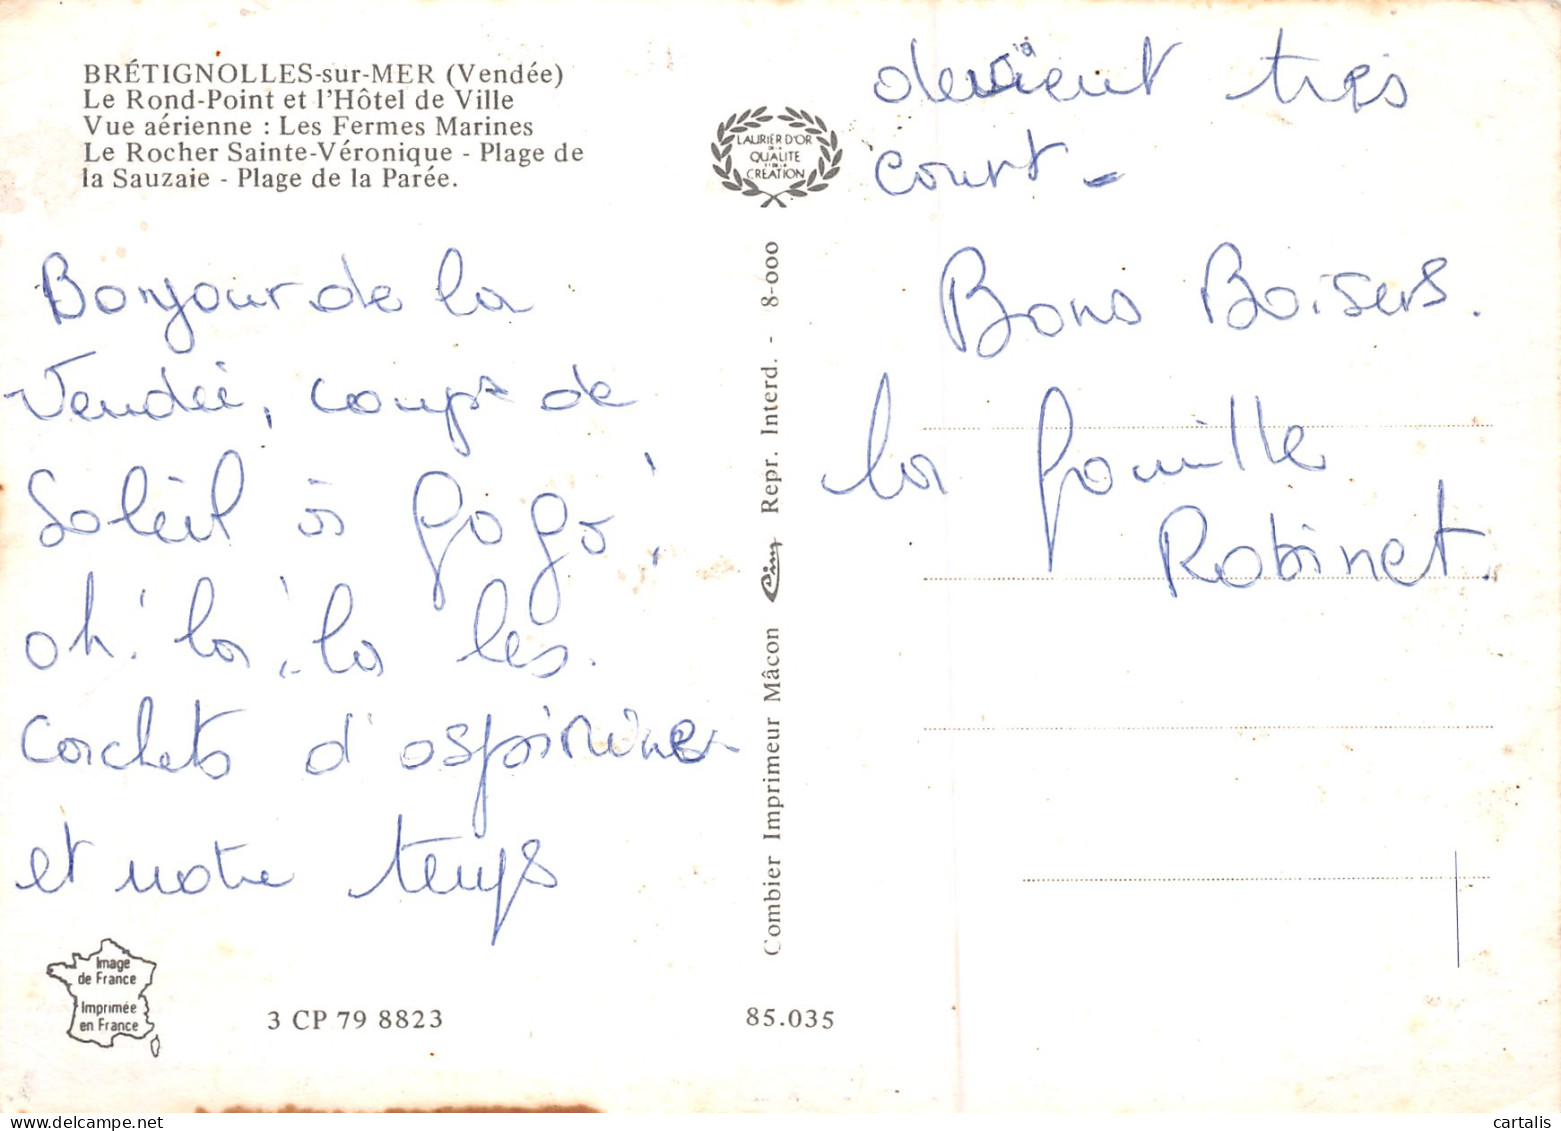 BRÉTIGNOLLES-sur-MER (Vendée)
Le Rond-Point et l'Hôtel de Ville
Vue aérienne : Les Fermes Marines
Le Rocher Sainte-Véronique - Plage de
la Sauzaie - Plage de la Parée.
LAURIER D'OR
DE LA
QUALITE
ET DE LA
CRÉATION
Bonjour de la
Vendée, coups de
Soleil à gogo!
oh! la, la les
cachets d'aspirine
et notre temps
devient très
court -
Bons Baisers.
la famille
Robinet.
Combier Imprimeur Mâcon Cim Repr. Interd. - 8-000
Image
de France
Imprimée
en France
3 CP 79 8823
85.035
cartalis